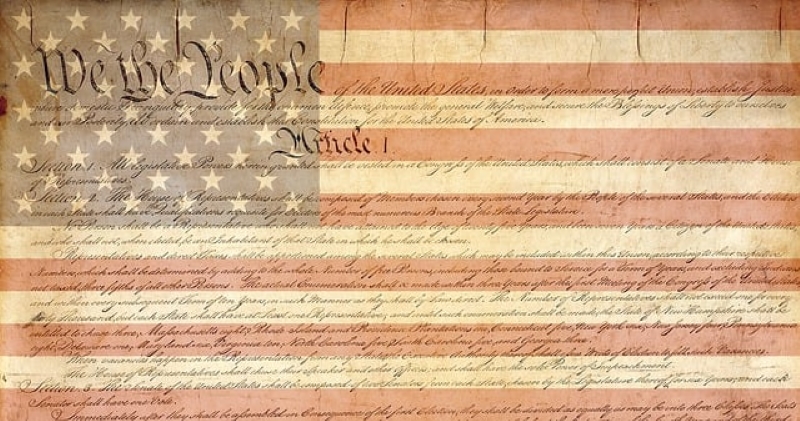 We the People of the United States, in order to form a more perfect Union, establish Justice,
insure domestic Tranquility, provide for the common defence, promote the general Welfare, and secure the Blessings of Liberty to ourselves
and our Posterity, do ordain and establish this Constitution for the United States of America.
Article I
Section 1. All legislative Powers herein granted shall be vested in a Congress of the United States, which shall consist of a Senate and House
of Representatives.
Section 2. The House of Representatives shall be composed of Members chosen every second Year by the People of the several States, and the Electors
in each State shall have Qualifications requisite for Electors of the most numerous Branch of the State Legislature.
No Person shall be a Representative who shall not have attained to the Age of twenty five Years, and been seven Years a Citizen of the United States,
and who shall not, when elected, be an Inhabitant of that State in which he shall be chosen.
Representatives and direct Taxes shall be apportioned among the several States which may be included within this Union, according to their respective
Numbers, which shall be determined by adding to the whole Number of free Persons, including those bound to Service for a Term of Years, and excluding Indians
not taxed, three fifths of all other Persons. The actual Enumeration shall be made within three Years after the first Meeting of the Congress of the United States,
and within every subsequent Term of ten Years, in such Manner as they shall by Law direct. The Number of Representatives shall not exceed one for every
thirty Thousand, but each State shall have at Least one Representative; and until such enumeration shall be made, the State of New Hampshire shall be
entitled to chuse three, Massachusetts eight, Rhode Island and Providence Plantations one, Connecticut five, New York six, New Jersey four, Pennsylvania
eight, Delaware one, Maryland six, Virginia ten, North Carolina five, South Carolina five, and Georgia three.
When vacancies happen in the Representation from any State, the Executive Authority thereof shall issue Writs of Election to fill such Vacancies.
The House of Representatives shall chuse their Speaker and other Officers; and shall have the sole Power of Impeachment.
Section 3. The Senate of the United States shall be composed of two Senators from each State, chosen by the Legislature thereof for six Years; and each
Senator shall have one Vote.
Immediately after they shall be assembled in Consequence of the first Election, they shall be divided as equally as may be into three Classes. The Seats